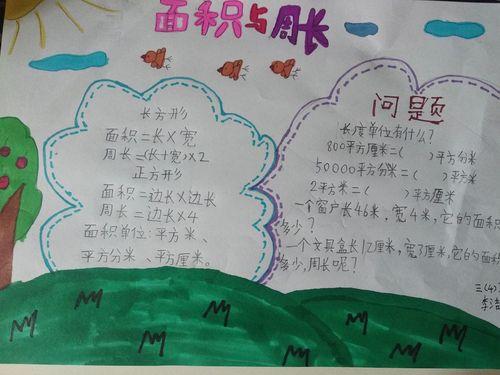 面积与周长
长方形
面积=长×宽
周长=(长+宽)×2
正方形
面积=边长×边长
周长=边长×4
面积单位:平方米、
平方分米、平方厘米。
问题
长度单位有什么?
800平方厘米=( )平方分米
50000平方分米=( )平方米
2平方米=( )平方厘米
一个窗户长46米,宽4米,它的面积
多少?
一个文具盒长12厘米,宽3厘米,它的面积
多少,周长呢?
三(4)
李浩